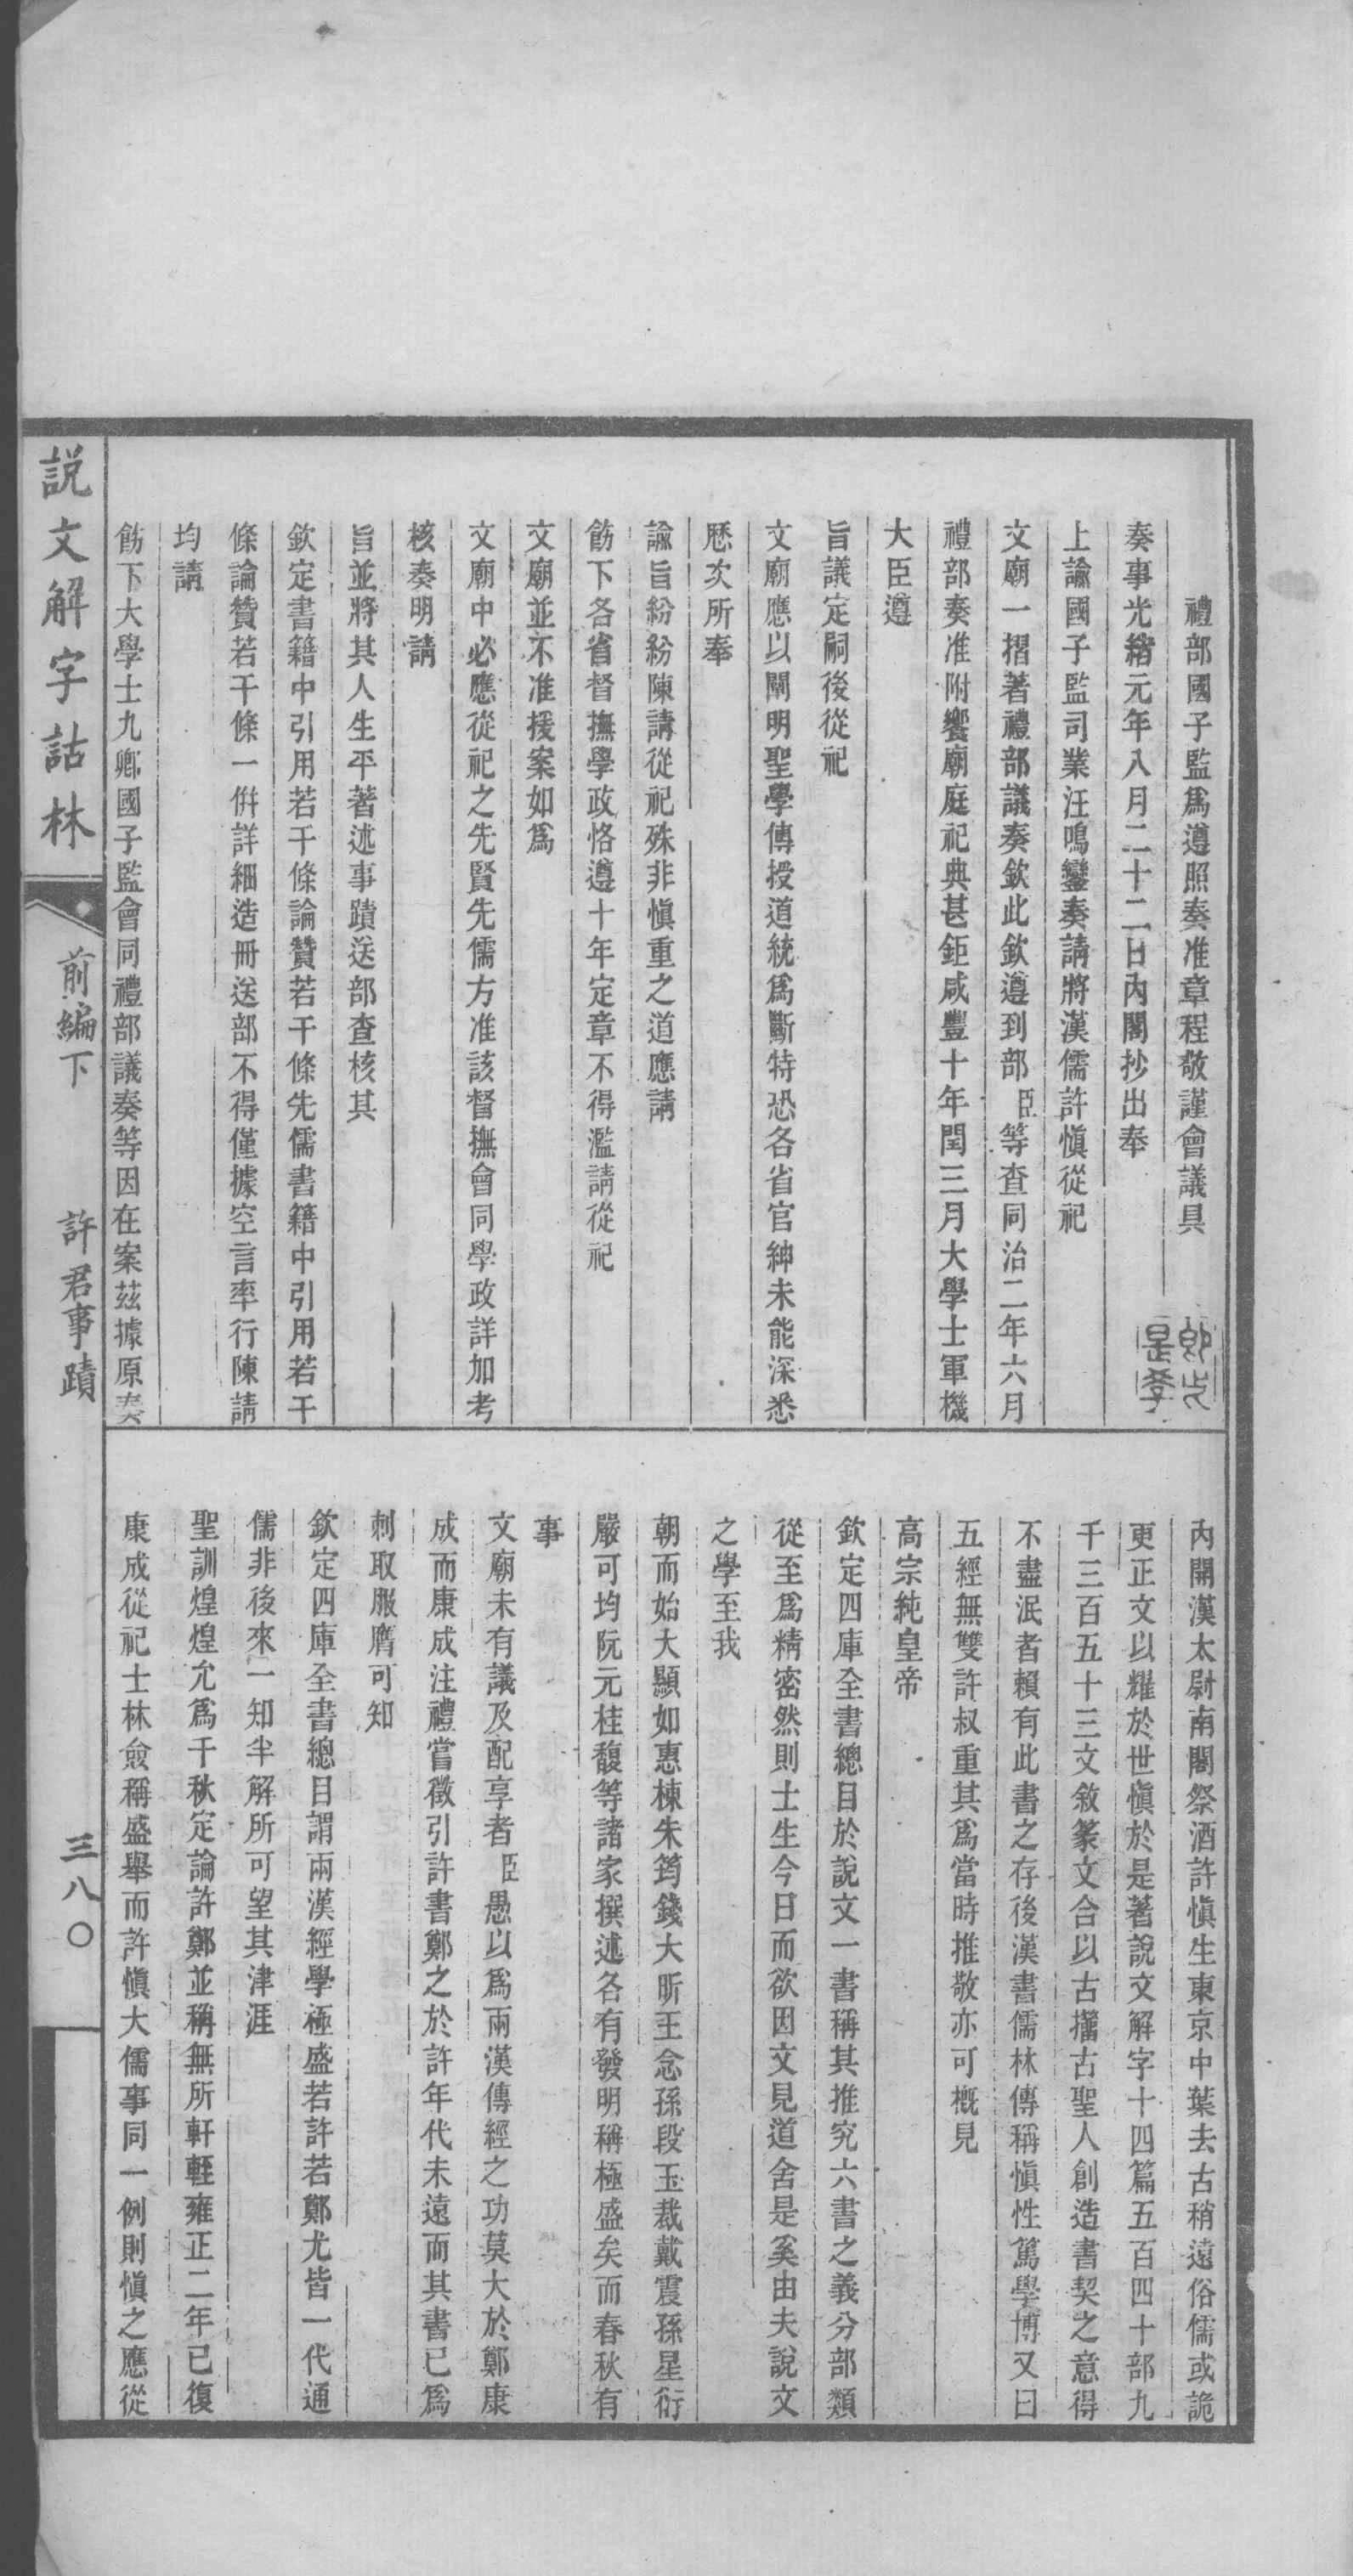 禮部國子監爲遵照奏准章程敬謹會議具
奏事光緒元年八月二十二日內閣抄出奉
上諭國子監司業汪鳴鑾奏請將漢儒許愼從祀
文廟一摺著禮部議奏欽此欽遵到部臣等查同治二年六月
禮部奏准附饗廟庭祀典甚鉅咸豐十年閏三月大學士軍機
大臣遵
旨議定嗣後從祀
文廟應以闡明聖學傳授道統爲斷特恐各省官紳未能深悉
歷次所奉
諭旨紛紛陳請從祀殊非愼重之道應請
飭下各省督撫學政恪遵十年定章不得濫請從祀
文廟並不准援案如爲
文廟中必應從祀之先賢先儒方准該督撫會同學政詳加考
核奏明請
旨並將其人生平著述事蹟送部查核其
欽定書籍中引用若干條論贊若干條先儒書籍中引用若干
條論贊若干條一倂詳細造冊送部不得僅據空言率行陳請
均請
飭下大學士九卿國子監會同禮部議奏等因在案茲據原奏
內開漢太尉南閣祭酒許愼生東京中葉去古稍遠俗儒或詭
更正文以耀於世愼於是著說文解字十四篇五百四十部九
千三百五十三文敘篆文合以古籒古聖人創造書契之意得
不盡泯者賴有此書之存後漢書儒林傳稱愼性篤學博又曰
五經無雙許叔重其爲當時推敬亦可槪見
高宗純皇帝
欽定四庫全書總目於說文一書稱其推究六書之義分部類
從至爲精密然則士生今日而欲因文見道舍是奚由夫說文
之學至我
朝而始大顯如惠棟朱筠錢大昕王念孫段玉裁戴震孫星衍
嚴可均阮元桂馥等諸家撰述各有發明稱極盛矣而春秋有
事
文廟未有議及配享者臣愚以爲兩漢傳經之功莫大於鄭康
成而康成注禮嘗徵引許書鄭之於許年代未遠而其書已爲
刺取服膺可知
欽定四庫全書總目謂兩漢經學極盛若許若鄭尤皆一代通
儒非後來一知半解所可望其津涯
聖訓煌煌允爲千秋定論許鄭並稱無所軒輊雍正二年已復
康成從祀士林僉稱盛舉而許愼大儒事同一例則愼之應從
説文解字詁林
前編下
許君事蹟
三八〇